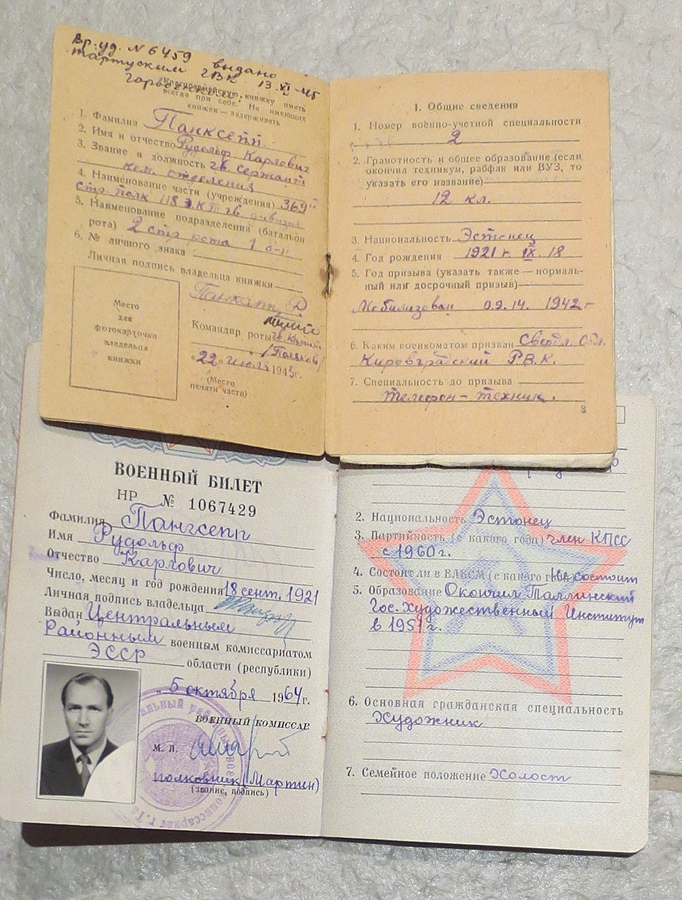 Вр. уд. № 6459 выдано
тартуским ГВК 13.XI-45
Красноармейскую книжку иметь
всегда при себе. Не имеющих
книжек — задерживать
1. Фамилия Панксепп
2. Имя и отчество Рудольф Карлович
3. Звание и должность гв. сержант
ком. отделения
4. Наименование части (учреждения) 369й
стр-полк 118 ЭКТ гв. дивизия
5. Наименование подразделения (батальон
рота) 2 стр рота 1 б-н
6. № личного знака
Личная подпись владельца книжки
Место
для
фотокарточки
владельца
книжки
Командир роты гв. Капит
/Поляков/
„22“ июля 1943г.
(Место
печати части)
I. Общие сведения
1. Номер военно-учетной специальности
2
2. Грамотность и общее образование (если
окончил техникум, рабфак или ВУЗ, то
указать его название)
12 кл.
3. Национальность Эстонец
4. Год рождения 1921 г. IX. 18
5. Год призыва (указать также — нормаль-
ный или досрочный призыв)
Мобилизован 09.14. 1942 г
6. Каким военкоматом призван Свердл. Обл.
Кировградский Р.В.К.
7. Специальность до призыва
телефон-техник.
3
ВОЕННЫЙ БИЛЕТ
НР № 1067429
Фамилия Пангсепп
Имя Рудольф
Отчество Карлович
Число, месяц и год рождения 18 сент. 1921
Личная подпись владельца
Выдан Центральным
Районным военным комиссариатом
ЭССР области (республики)
„5 октября 1964 г.
ВОЕННЫЙ КОМИССАР
М. П.
полковник (Мартин)
(звание, подпись)
2. Национальность Эстонец
3. Партийность (с какого года) член КПСС
с 1960 г.
4. Состоит ли в ВЛКСМ (с какого года) Не состоит
5. Образование Окончил Таллинский
Гос. Художественный Институт
в 1951 г.
6. Основная гражданская специальность
Художник
7. Семейное положение Холост